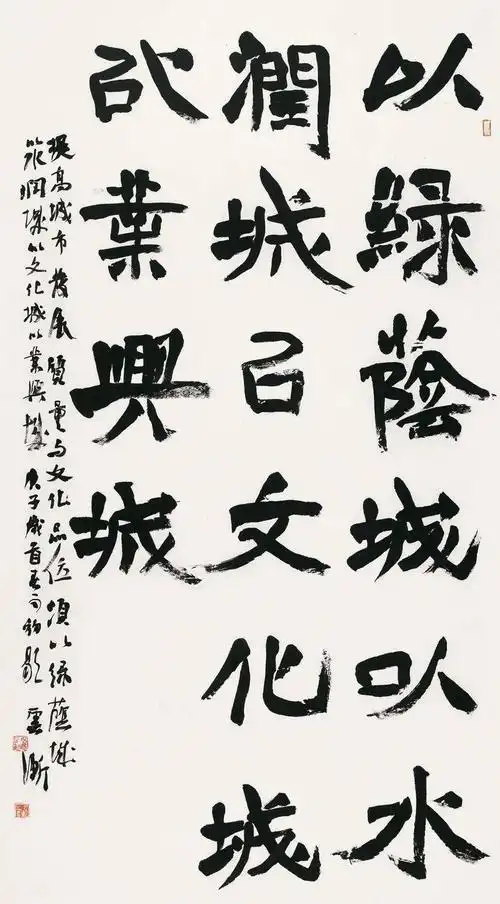 以綠蔭城以水
潤城以文化城
以業興城
提高城市發展質量与文化品位須以綠蔭城
以水潤城以文化城以業興城庚子歲首